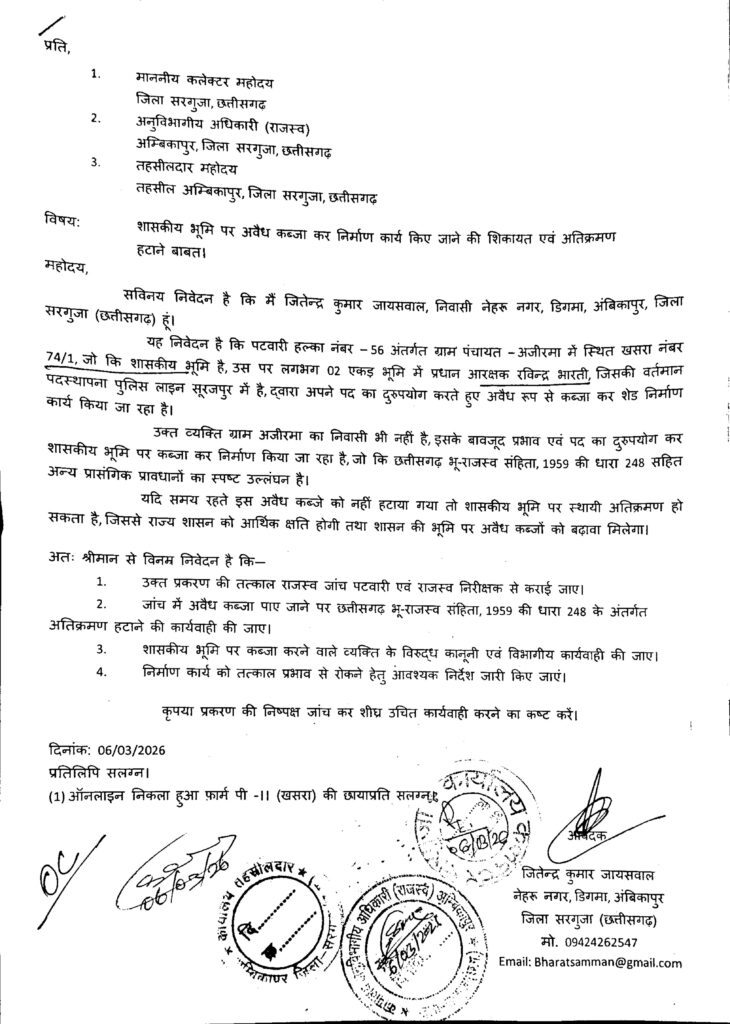 प्रति,
1. माननीय कलेक्टर महोदय
जिला सरगुजा, छत्तीसगढ़
2. अनुविभागीय अधिकारी (राजस्व)
अम्बिकापुर, जिला सरगुजा, छत्तीसगढ़
3. तहसीलदार महोदय
तहसील अम्बिकापुर, जिला सरगुजा, छत्तीसगढ़
विषय: शासकीय भूमि पर अवैध कब्जा कर निर्माण कार्य किए जाने की शिकायत एवं अतिक्रमण
हटाने बाबत।
महोदय,
सविनय निवेदन है कि मैं जितेन्द्र कुमार जायसवाल, निवासी नेहरू नगर, डिगमा, अंबिकापुर, जिला
सरगुजा (छत्तीसगढ़) हूं।
यह निवेदन है कि पटवारी हल्का नंबर – 56 अंतर्गत ग्राम पंचायत – अजीरमा में स्थित खसरा नंबर
74/1, जो कि शासकीय भूमि है, उस पर लगभग 02 एकड़ भूमि में प्रधान आरक्षक रविन्द्र भारती, जिसकी वर्तमान
पदस्थापना पुलिस लाइन सूरजपुर में है, द्वारा अपने पद का दुरुपयोग करते हुए अवैध रूप से कब्जा कर शेड निर्माण
कार्य किया जा रहा है।
उक्त व्यक्ति ग्राम अजीरमा का निवासी भी नहीं है, इसके बावजूद प्रभाव एवं पद का दुरुपयोग कर
शासकीय भूमि पर कब्जा कर निर्माण किया जा रहा है, जो कि छत्तीसगढ़ भू-राजस्व संहिता, 1959 की धारा 248 सहित
अन्य प्रासंगिक प्रावधानों का स्पष्ट उल्लंघन है।
यदि समय रहते इस अवैध कब्जे को नहीं हटाया गया तो शासकीय भूमि पर स्थायी अतिक्रमण हो
सकता है, जिससे राज्य शासन को आर्थिक क्षति होगी तथा शासन की भूमि पर अवैध कब्जों को बढ़ावा मिलेगा।
अतः श्रीमान से विनम निवेदन है कि—
1. उक्त प्रकरण की तत्काल राजस्व जांच पटवारी एवं राजस्व निरीक्षक से कराई जाए।
2. जांच में अवैध कब्जा पाए जाने पर छत्तीसगढ़ भू-राजस्व संहिता, 1959 की धारा 248 के अंतर्गत
अतिक्रमण हटाने की कार्यवाही की जाए।
3. शासकीय भूमि पर कब्जा करने वाले व्यक्ति के विरुद्ध कानूनी एवं विभागीय कार्यवाही की जाए।
4. निर्माण कार्य को तत्काल प्रभाव से रोकने हेतु आवश्यक निर्देश जारी किए जाएं।
कृपया प्रकरण की निष्पक्ष जांच कर शीघ्र उचित कार्यवाही करने का कष्ट करें।
दिनांक: 06/03/2026
प्रतिलिपि सलग्न।
(1) ऑनलाइन निकला हुआ फ़ार्म पी -II (खसरा) की छायाप्रति सलग्न।
कार्यालय
06/03/26
आवेदक
OC
06/03/26
कार्यालय तहसीलदार
अम्बिकापुर जिला-सरगु
अनुविभागीय अधिकारी (राजस्व) अम्बिकापुर
6/03/2026
जितेन्द्र कुमार जायसवाल
नेहरू नगर, डिगमा, अंबिकापुर
जिला सरगुजा (छत्तीसगढ़)
मो. 09424262547
Email: Bharatsamman@gmail.com